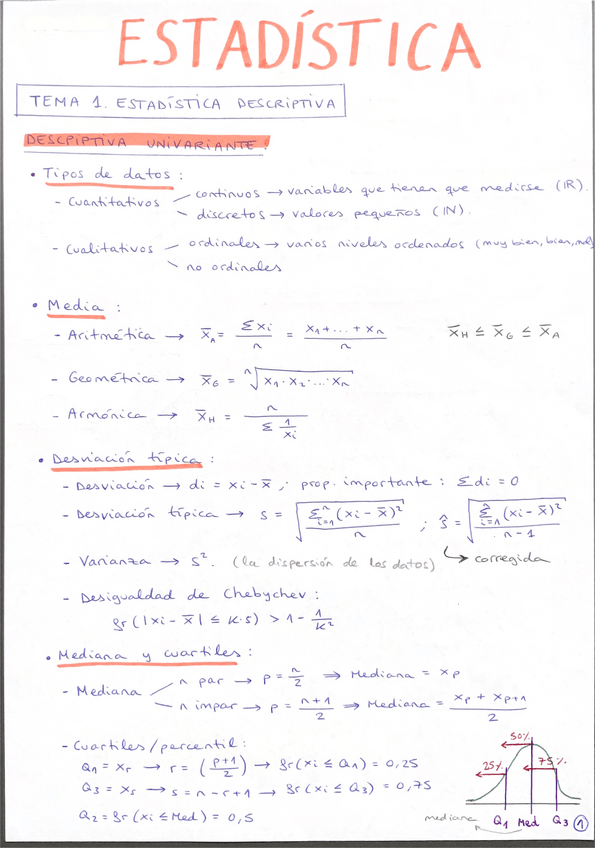 ESTADÍSTICA
TEMA 1. ESTADÍSTICA DESCRIPTIVA
DESCPIPTIVA UNIVARIANTE:
• Tipos de datos:
- Cuantitativos
continuos → variables que tienen que medirse (IR).
discretos → valores pequeños (IN).
- Cualitativos
ordinales → varios niveles ordenados (muy bien, bien, mal)
no ordinales
• Media:
- Aritmética → x̄_A = Σxi / n = (x1 + ... + xn) / n
x̄_H ≤ x̄_G ≤ x̄_A
- Geométrica → x̄_G = ⁿ√(x1 · x2 · ... · xn)
- Armónica → x̄_H = n / (Σ 1/xi)
• Desviación típica:
- Desviación → di = xi - x̄ ; prop. importante: Σdi = 0
- Desviación típica → s = √(Σⁿᵢ₌₁ (xi - x̄)² / n) ; ŝ = √(Σⁿᵢ₌₁ (xi - x̄)² / (n - 1))
- Varianza → s². (la dispersión de los datos) ↳ corregida
- Desigualdad de Chebychev:
fr (|xi - x̄| ≤ K·s) > 1 - 1/K²
• Mediana y cuartiles:
- Mediana
n par → p = n/2 ⇒ Mediana = xp
n impar → p = (n+1)/2 ⇒ Mediana = (xp + xp+1) / 2
- Cuartiles/percentil:
Q1 = xr → r = ((p+1)/2) → fr (xi ≤ Q1) = 0,25
Q3 = xs → s = n - r + 1 → fr (xi ≤ Q3) = 0,75
Q2 = fr (xi ≤ Med) = 0,5
50%
25%
75%
mediana
Q1 Med Q3
1